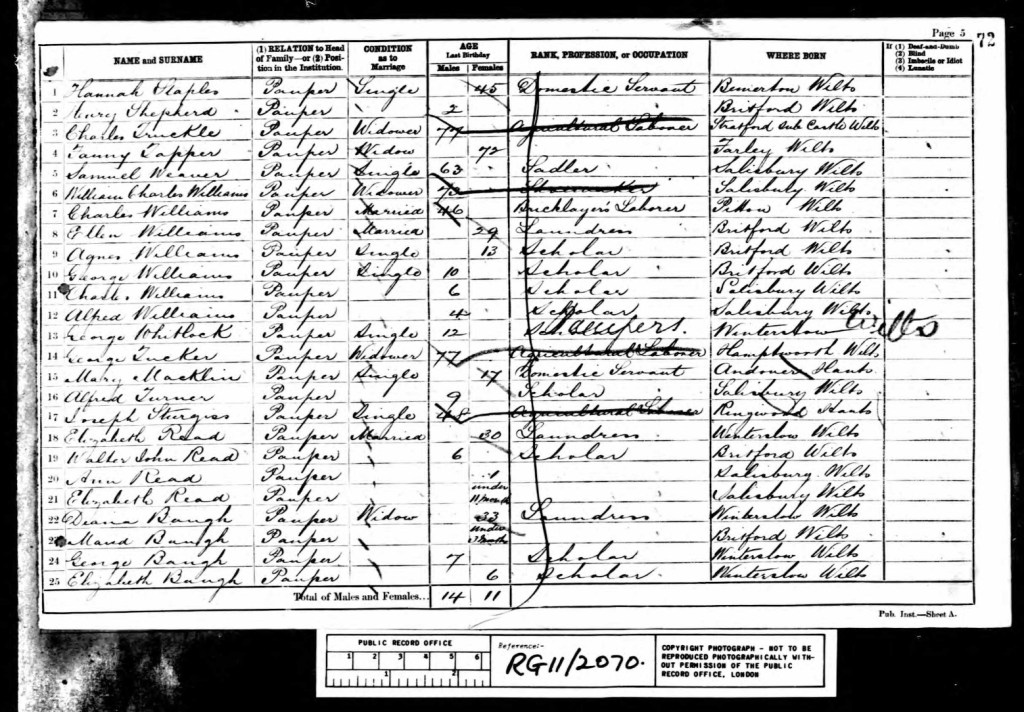 Page 5
72
NAME and SURNAME (1) RELATION to Head of Family—or (2) Position in the Institution. CONDITION as to Marriage AGE Last Birthday Males Females RANK, PROFESSION, or OCCUPATION WHERE BORN If (1) Deaf-and-Dumb (2) Blind (3) Imbecile or Idiot (4) Lunatic
1 Hannah Staples Pauper Single 45 Domestic Servant Bemerton Wilts
2 Henry Shepherd Pauper 2 Britford Wilts
3 Charles Truckle Pauper Widower 77 Agricultural Laborer Stratford sub Castle Wilts
4 Fanny Tapper Pauper Widow 72 Farley Wilts
5 Samuel Weaver Pauper Single 63 Sadler Salisbury Wilts
6 William Charles Williams Pauper Widower 73 Shoemaker Salisbury Wilts
7 Charles Williams Pauper Married 46 Bricklayer's Laborer Pitton Wilts
8 Ellen Williams Pauper Married 29 Laundress Britford Wilts
9 Agnes Williams Pauper Single 13 Scholar Britford Wilts
10 George Williams Pauper Single 10 Scholar Britford Wilts
11 Charles Williams Pauper 6 Scholar Salisbury Wilts
12 Alfred Williams Pauper 4 Scholar Salisbury Wilts
13 George Whitlock Pauper Single 12 Paupers. Winterslow Wilts
14 George Tucker Pauper Widower 77 Agricultural Laborer Hamptworth Wilts
15 Mary Macklin Pauper Single 17 Domestic Servant Andover Hants
16 Alfred Turner Pauper 9 Scholar Salisbury Wilts
17 Joseph Sturgiss Pauper Single 48 Agricultural Laborer Ringwood Hants
18 Elizabeth Read Pauper Married 30 Laundress Winterslow Wilts
19 Walter John Read Pauper 6 Scholar Britford Wilts
20 Ann Read Pauper Salisbury Wilts
21 Elizabeth Read Pauper under 11 month Salisbury Wilts
22 Diana Baugh Pauper Widow 33 Laundress Winterslow Wilts
23 Maud Baugh Pauper under 3 months Britford Wilts
24 George Baugh Pauper 7 Scholar Winterslow Wilts
25 Elizabeth Baugh Pauper 6 Scholar Winterslow Wilts
Total of Males and Females... 14 11
Pub. Inst.—Sheet A.
PUBLIC RECORD OFFICE
1 2 3 4 5 6
1 2
Reference:-
RG11/2070.
COPYRIGHT PHOTOGRAPH - NOT TO BE
REPRODUCED PHOTOGRAPHICALLY WITH-
OUT PERMISSION OF THE PUBLIC
RECORD OFFICE, LONDON